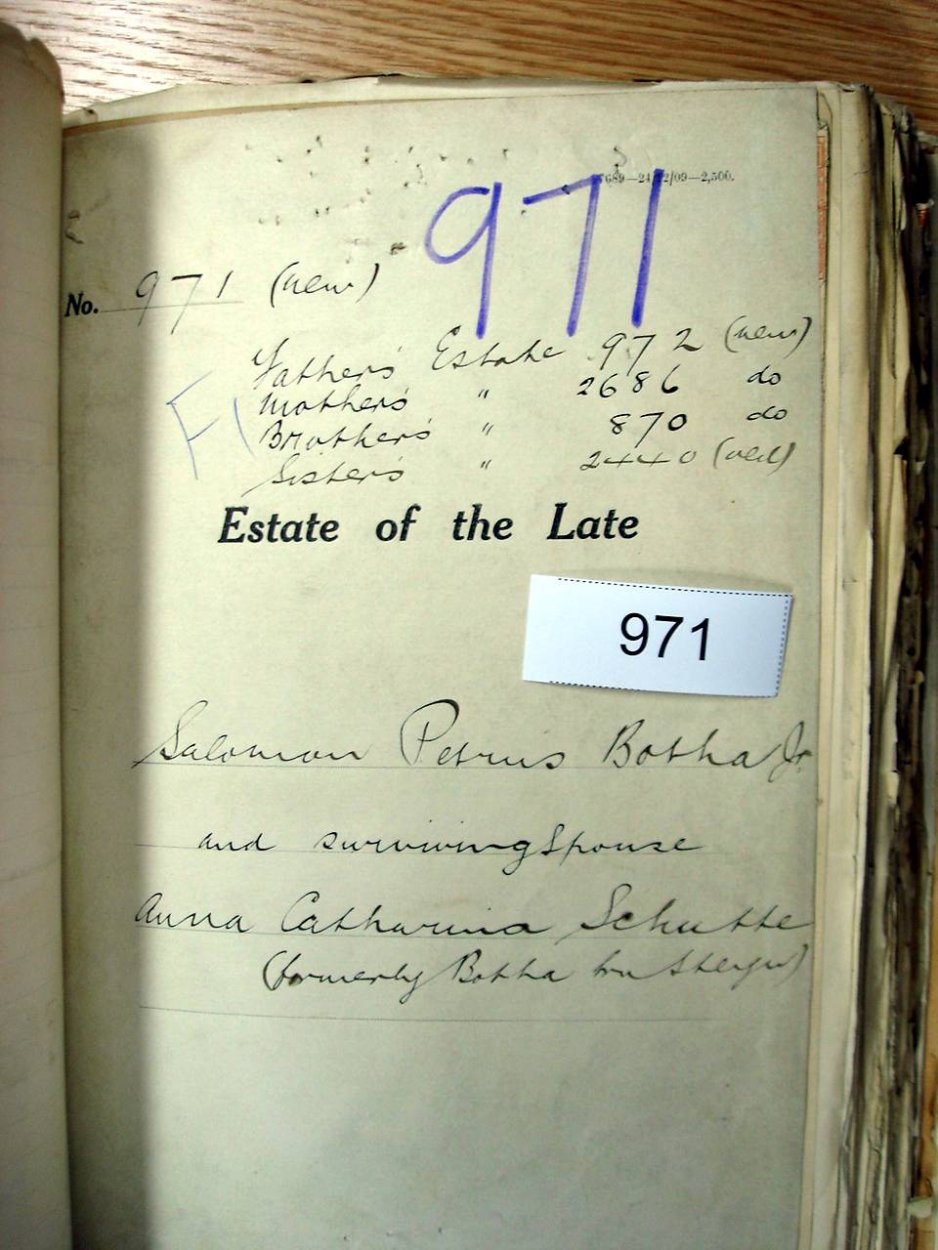 689—24/12/09—2,500.
971
No. 971 (new)
Father's Estate 972 (new)
Mother's " 2686 do
Brother's " 870 do
Sister's " 2440
Estate of the Late
971
Salomon Petrus Botha Jr.
and surviving Spouse
Anna Catharina Schutte
(formerly Botha